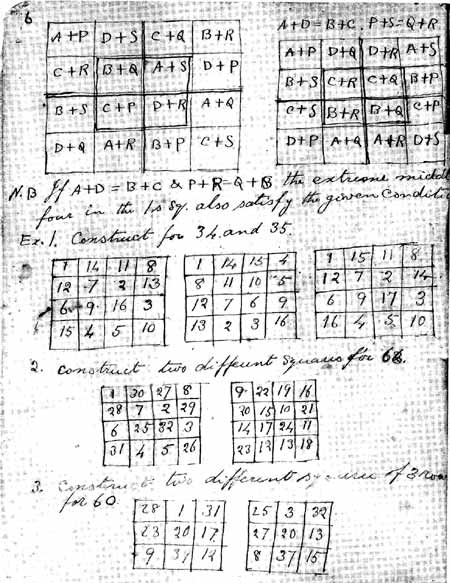 6
A+P D+S C+Q B+R
C+R B+Q A+S D+P
B+S C+P D+R A+Q
D+Q A+R B+P C+S
A+D=B+C. P+S=Q+R
A+P D+Q D+R A+S
B+S C+R C+Q B+P
C+S B+R B+Q C+P
D+P A+Q A+R D+S
N.B If A+D = B+C & P+R=Q+S the extreme middl
four in the 1st Sq. also satisfy the given Conditi
Ex. 1. Construct for 34 and 35.
1 14 11 8
12 7 2 13
6 9 16 3
15 4 5 10
1 14 15 4
8 11 10 5
12 7 6 9
13 2 3 16
1 15 11 8
12 7 2 14
6 9 17 3
16 4 5 10
2. Construct two different squares for 66.
1 30 27 8
28 7 2 29
6 25 32 3
31 4 5 26
9 22 19 16
20 15 10 21
14 17 24 11
23 12 13 18
3. Construct two different squares of 3 row
for 60.
28 1 31
23 20 17
9 39 12
25 3 32
27 20 13
8 37 15